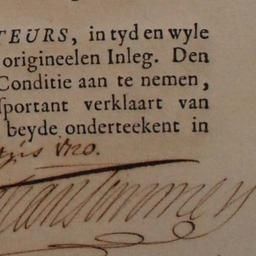 TEURS, in tyd en wyle
origineelen Inleg. Den
Conditie aan te nemen,
sportant verklaart van
beyde onderteekent in